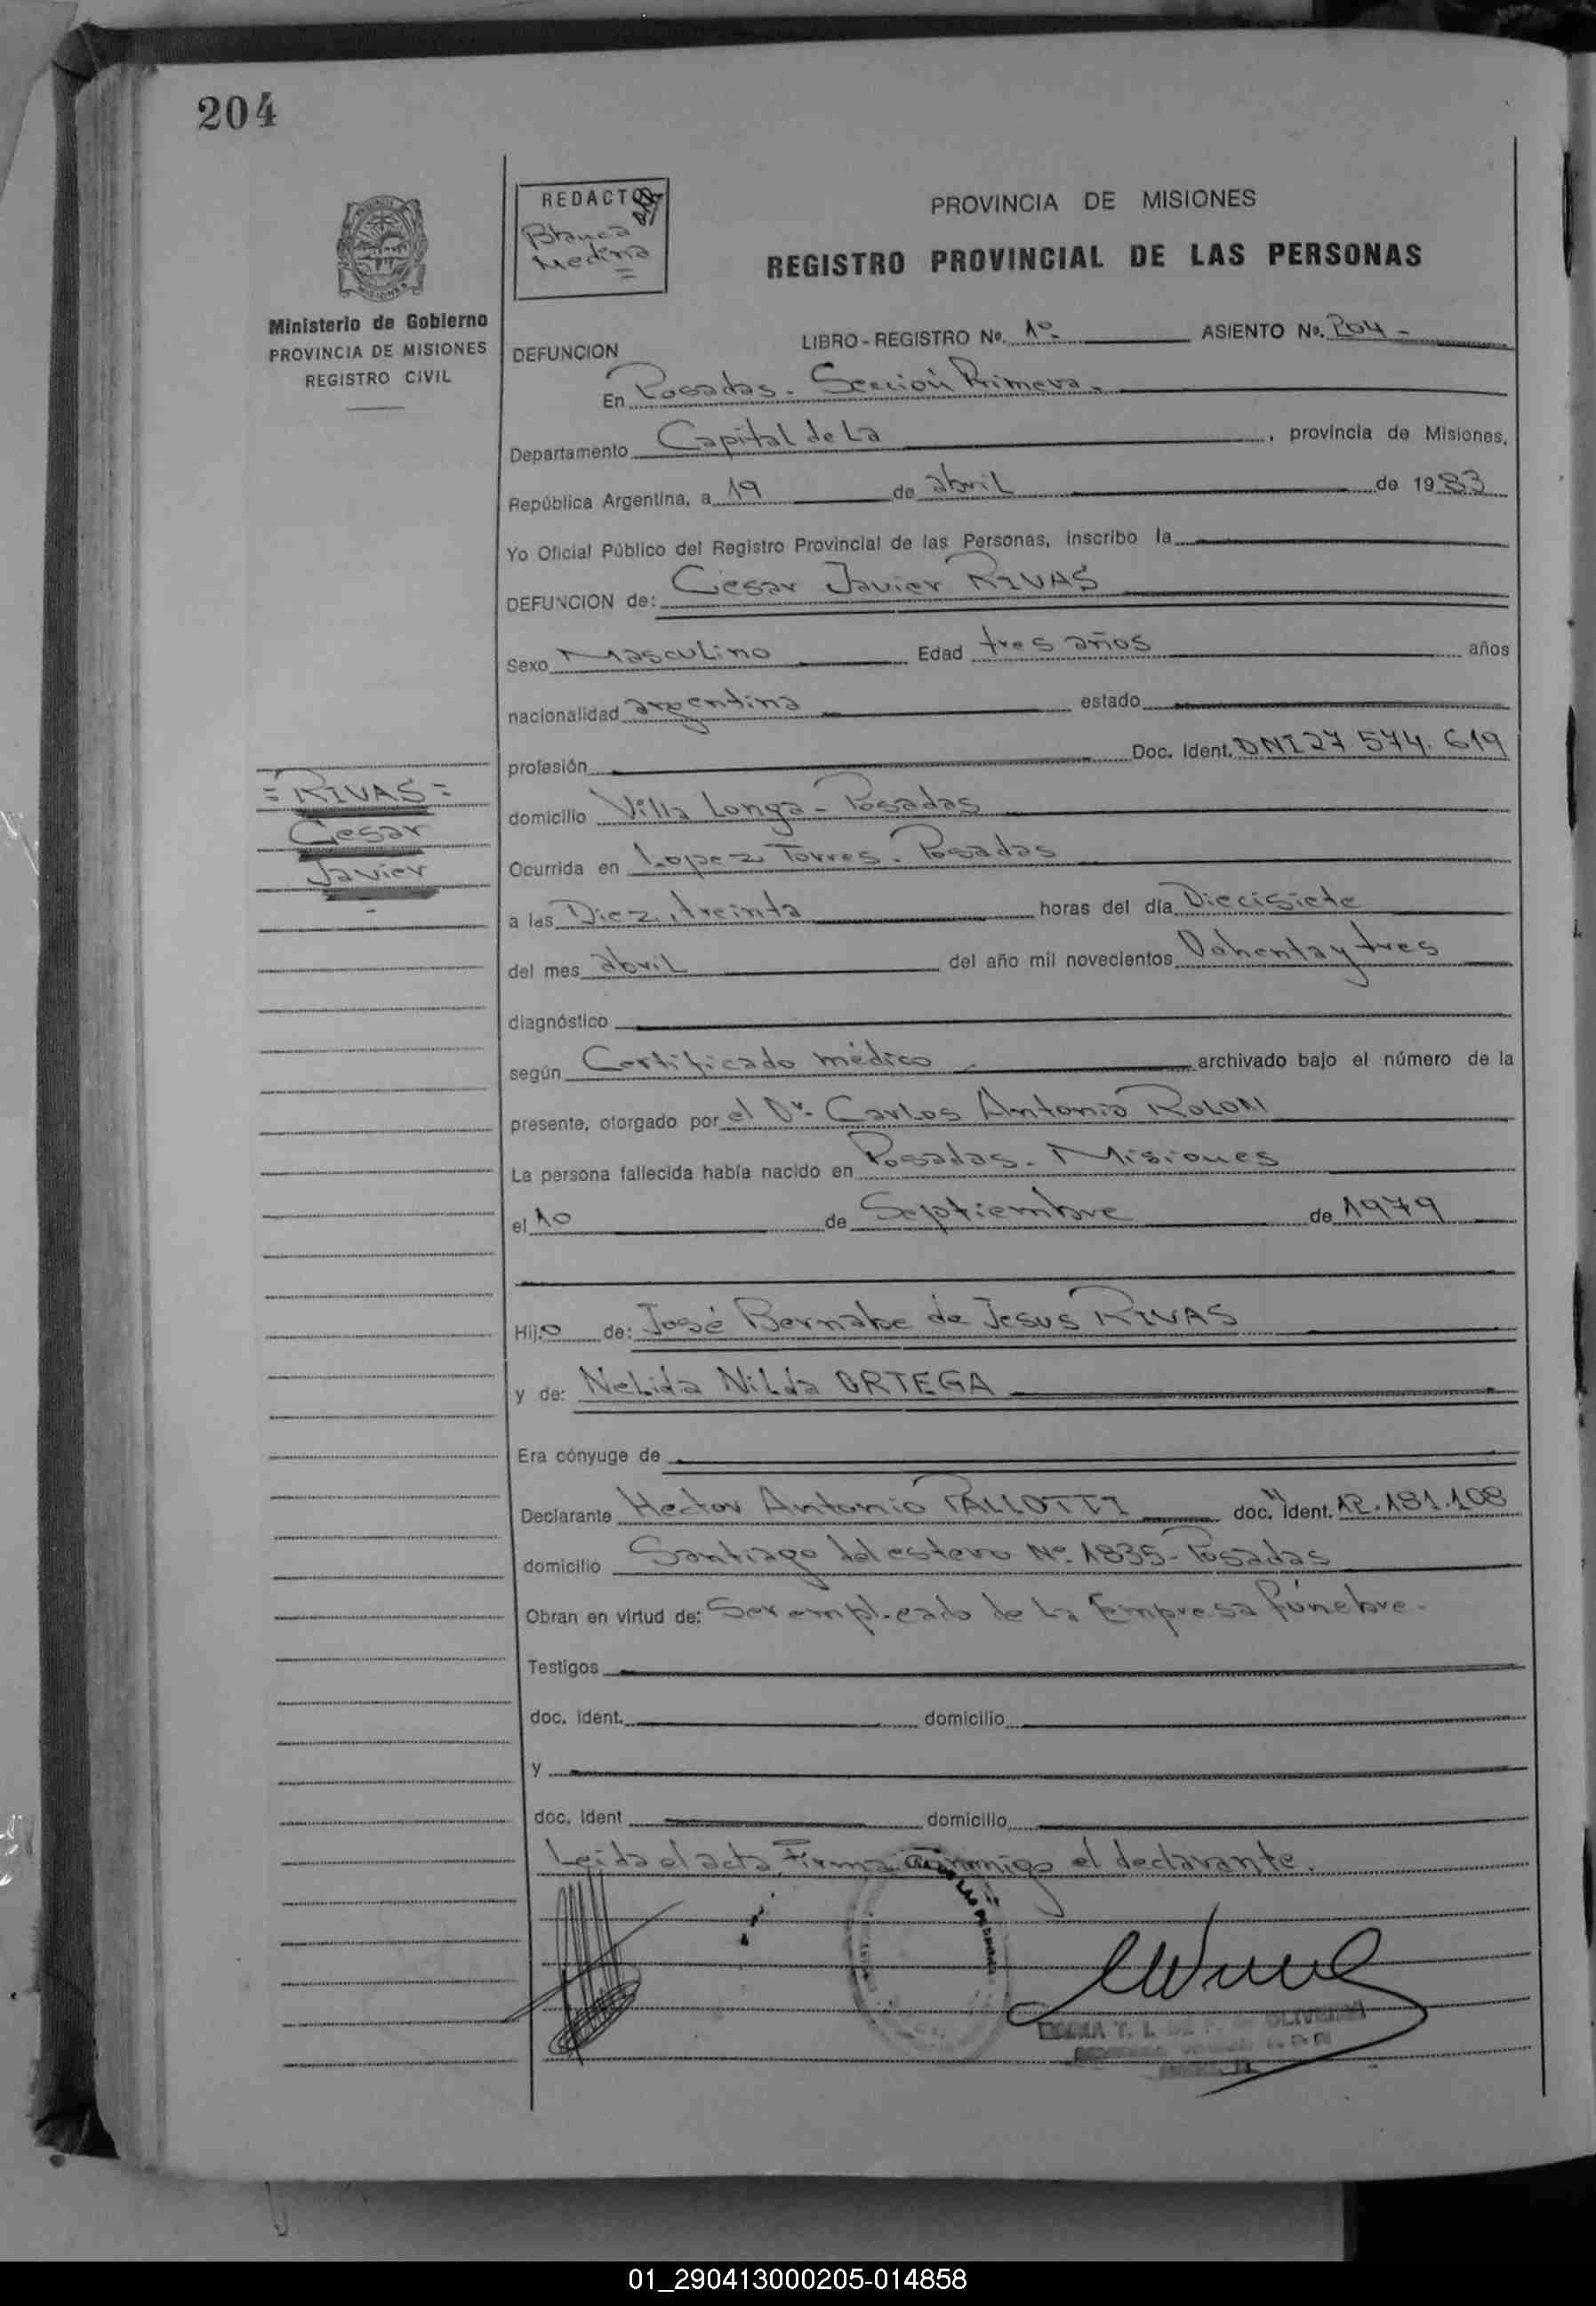 204
REDACTOR
Blanca
Medina
PROVINCIA DE MISIONES
REGISTRO PROVINCIAL DE LAS PERSONAS
Ministerio de Gobierno
PROVINCIA DE MISIONES
REGISTRO CIVIL
DEFUNCION LIBRO - REGISTRO No. 1º ASIENTO No. 204 -
En Posadas. Sección Primera.
Departamento Capital de La , provincia de Misiones,
República Argentina, a 19 de abril de 1983
Yo Oficial Público del Registro Provincial de las Personas, inscribo la
DEFUNCION de: Cesar Javier RIVAS
Sexo Masculino Edad tres años años
nacionalidad argentina estado
profesión Doc. Ident. DNI 27 574. 619
= RIVAS =
Cesar
Javier
domicilio Villa Longa - Posadas
Ocurrida en Lopez Torres. Posadas
a las Diez, treinta horas del día Diecisiete
del mes abril del año mil novecientos Oohenta y tres
diagnóstico
según Certificado médico archivado bajo el número de la
presente, otorgado por el Dr. Carlos Antonio ROLON
La persona fallecida había nacido en Posadas. Misiones
el 10 de Septiembre de 1979
Hijo de: José Bernabe de Jesus RIVAS
y de: Nelida Nilda ORTEGA
Era cónyuge de
Declarante Hector Antonio PALLOTTI doc. ident. 12.181.108
domicilio Santiago del estero Nº 1835 - Posadas
Obran en virtud de: Ser empleado de La Empresa fúnebre.
Testigos
doc. ident. domicilio
y
doc. ident domicilio
Leida el acta, Firma conmigo el declarante.
01_290413000205-014858